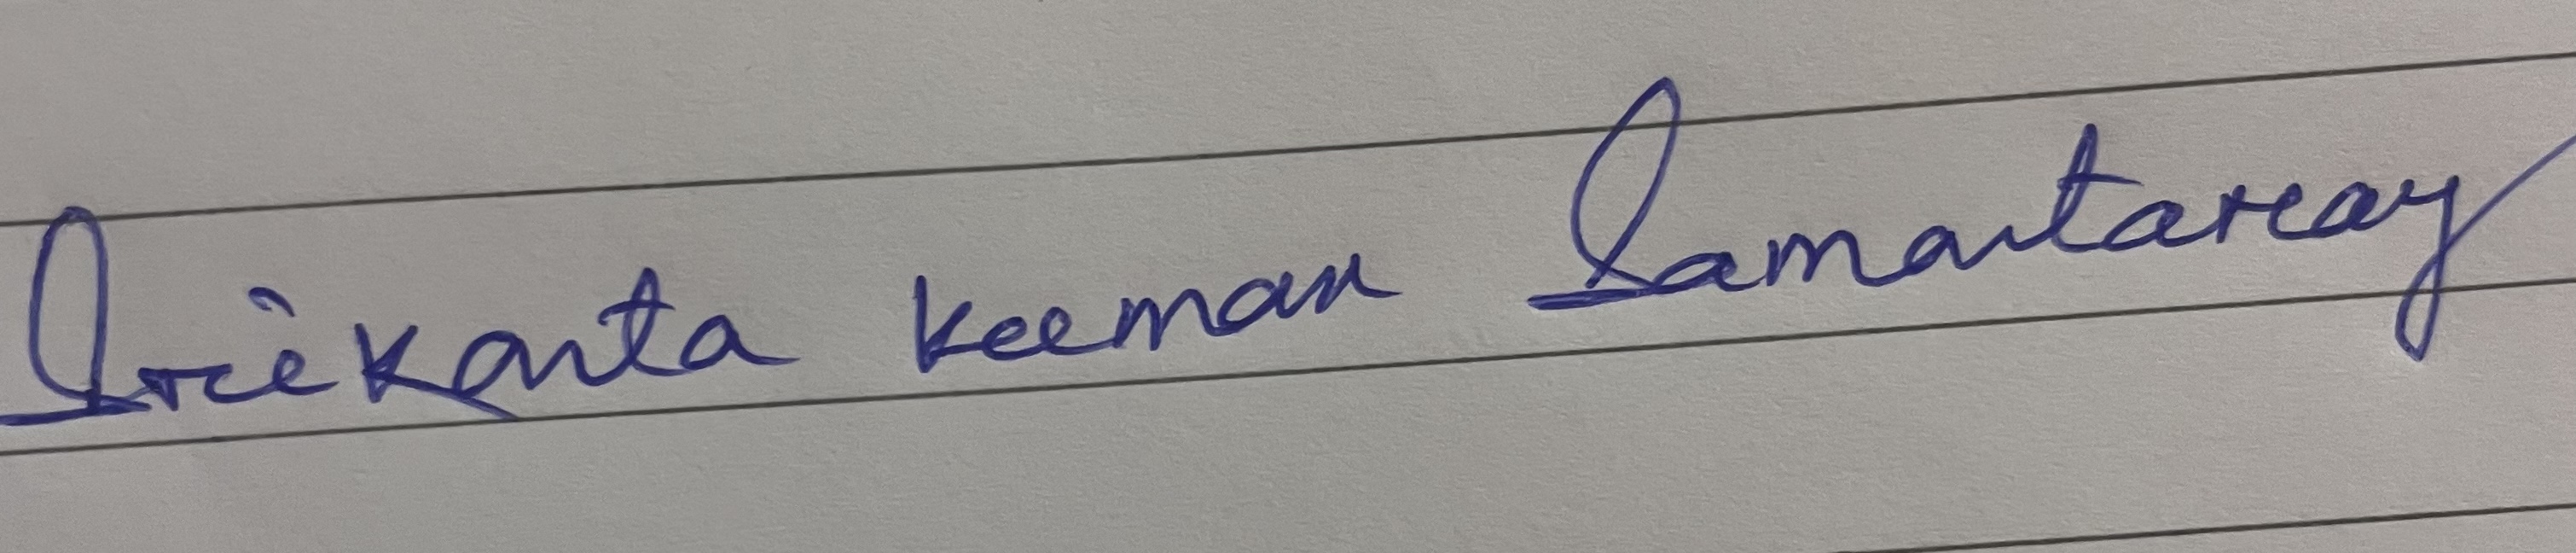 Srikanta Kumar Samantaray